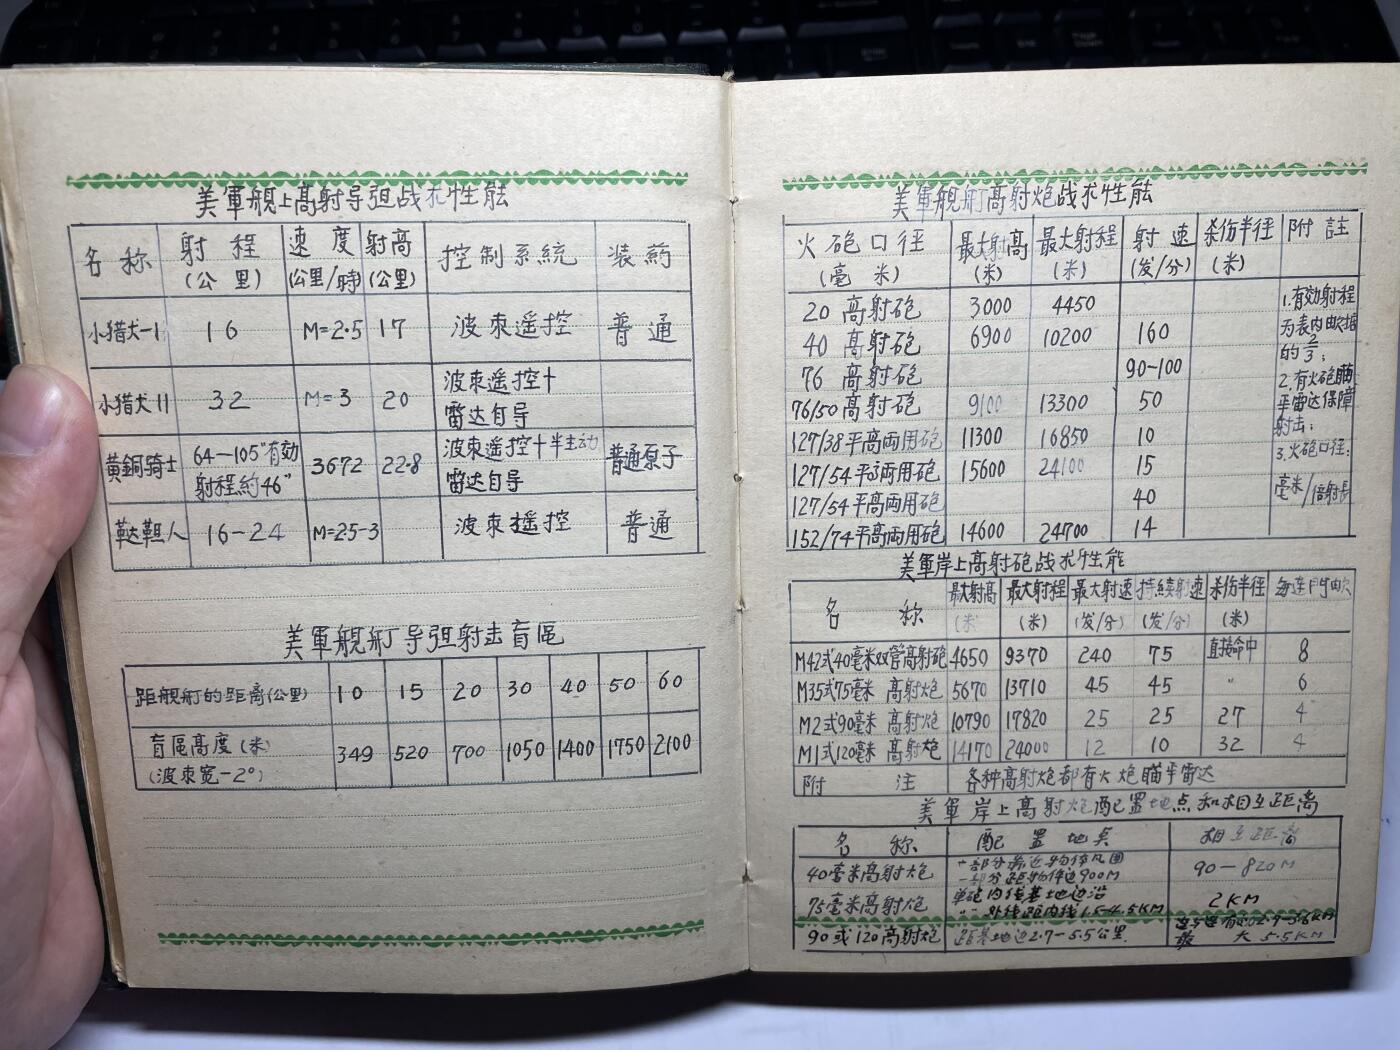 美軍舰上高射导弹战术性能
名称 射程 速度 射高 控制系統 装药
(公里) (公里/時) (公里)
小猎犬-I 16 M=2.5 17 波束遥控 普通
小猎犬II 32 M=3 20 波束遥控十
雷达自导
黄銅骑士 64-105"有効 3672 22.8 波束遥控十半主动 普通原子
射程約46" 雷达自导
鞑靼人 16-24 M=2.5-3 波束搖控 普通
美軍舰艇导弹射击盲區
距舰艇的距离(公里) 10 15 20 30 40 50 60
盲區高度(米) 349 520 700 1050 1400 1750 2100
(波束宽-2°)
美軍舰艇高射炮战术性能
火砲口径 最大射高 最大射程 射速 杀伤半径 附註
(毫米) (米) (米) (发/分) (米)
20高射砲 3000 4450
40高射砲 6900 10200 160
76高射砲 90-100
76/50高射砲 9100 13300 50
127/38平高両用砲 11300 16850 10
127/54平高両用砲 15600 24100 15
127/54平高両用砲 40
152/74平高両用砲 14600 24700 14
1.有効射程
为表内
的2/3;
2.有火砲瞄
平雷达保障
射击;
3.火砲口径:
毫米/倍射長
美軍岸上高射砲战术性能
名称 最大射高 最大射程 最大射速 持続射速 杀伤半径 每连門
(米) (米) (发/分) (发/分) (米)
M42式40毫米双管高射砲 4650 9370 240 75 直接命中 8
M35式75毫米高射炮 5670 13710 45 45 " 6
M2式90毫米高射炮 10790 17820 25 25 27 4
M1式120毫米高射炮 14170 24000 12 10 32 4
附注 各种高射炮都有火炮瞄平雷达
美軍岸上高射炮配置地点和相互距离
名称 配置地点 相互距离
40毫米高射火炮 一部分靠近物体 90-820M
一部分距物体边900M
75毫米高射炮 内线基地边沿 2KM
" 外线距内线1.5-4.5KM
90或120高射炮 距基地边2.7-5.5公里. 最大5.5KM